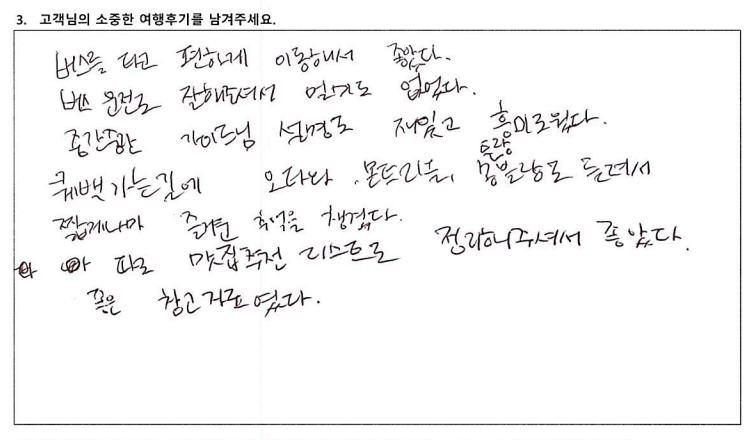 3. 고객님의 소중한 여행후기를 남겨주세요.
버스를 타고 편하게 이동해서 좋았다.
버스 운전도 잘해주셔서 멀미도 없었다.
중간중간 가이드님 설명도 재밌고 흥미로웠다.
퀘벡가는길에 오타와, 몬트리올, 몽트랑블랑도 들려서
짧게나마 즐거운 추억을 챙겼다.
따로 맛집추천 리스트도 정리해주셔서 좋았다.
좋은 참고자료였다.